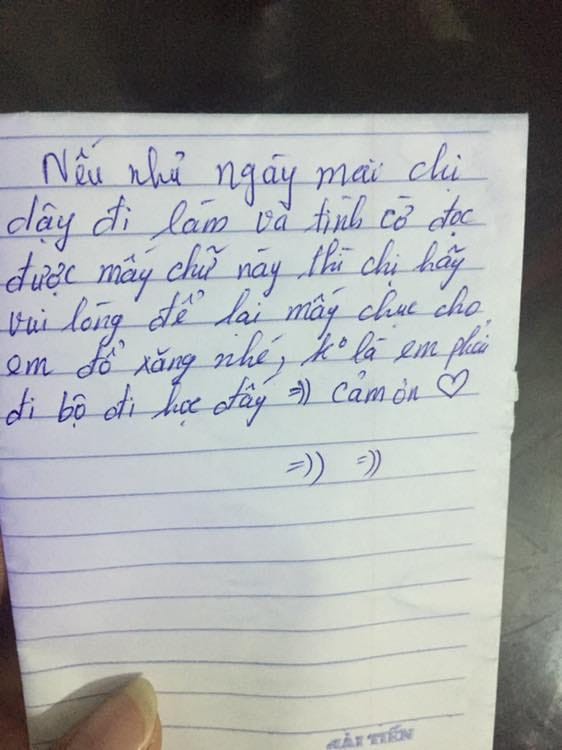 Nếu như ngày mai chị
dậy đi làm và tình cờ đọc
được mấy chữ này thì chị hãy
vui lòng để lại mấy chục cho
em đổ xăng nhé, ko là em phải
đi bộ đi học đấy =)) cảm ơn ♡
=)) =))
CẢI TIẾN